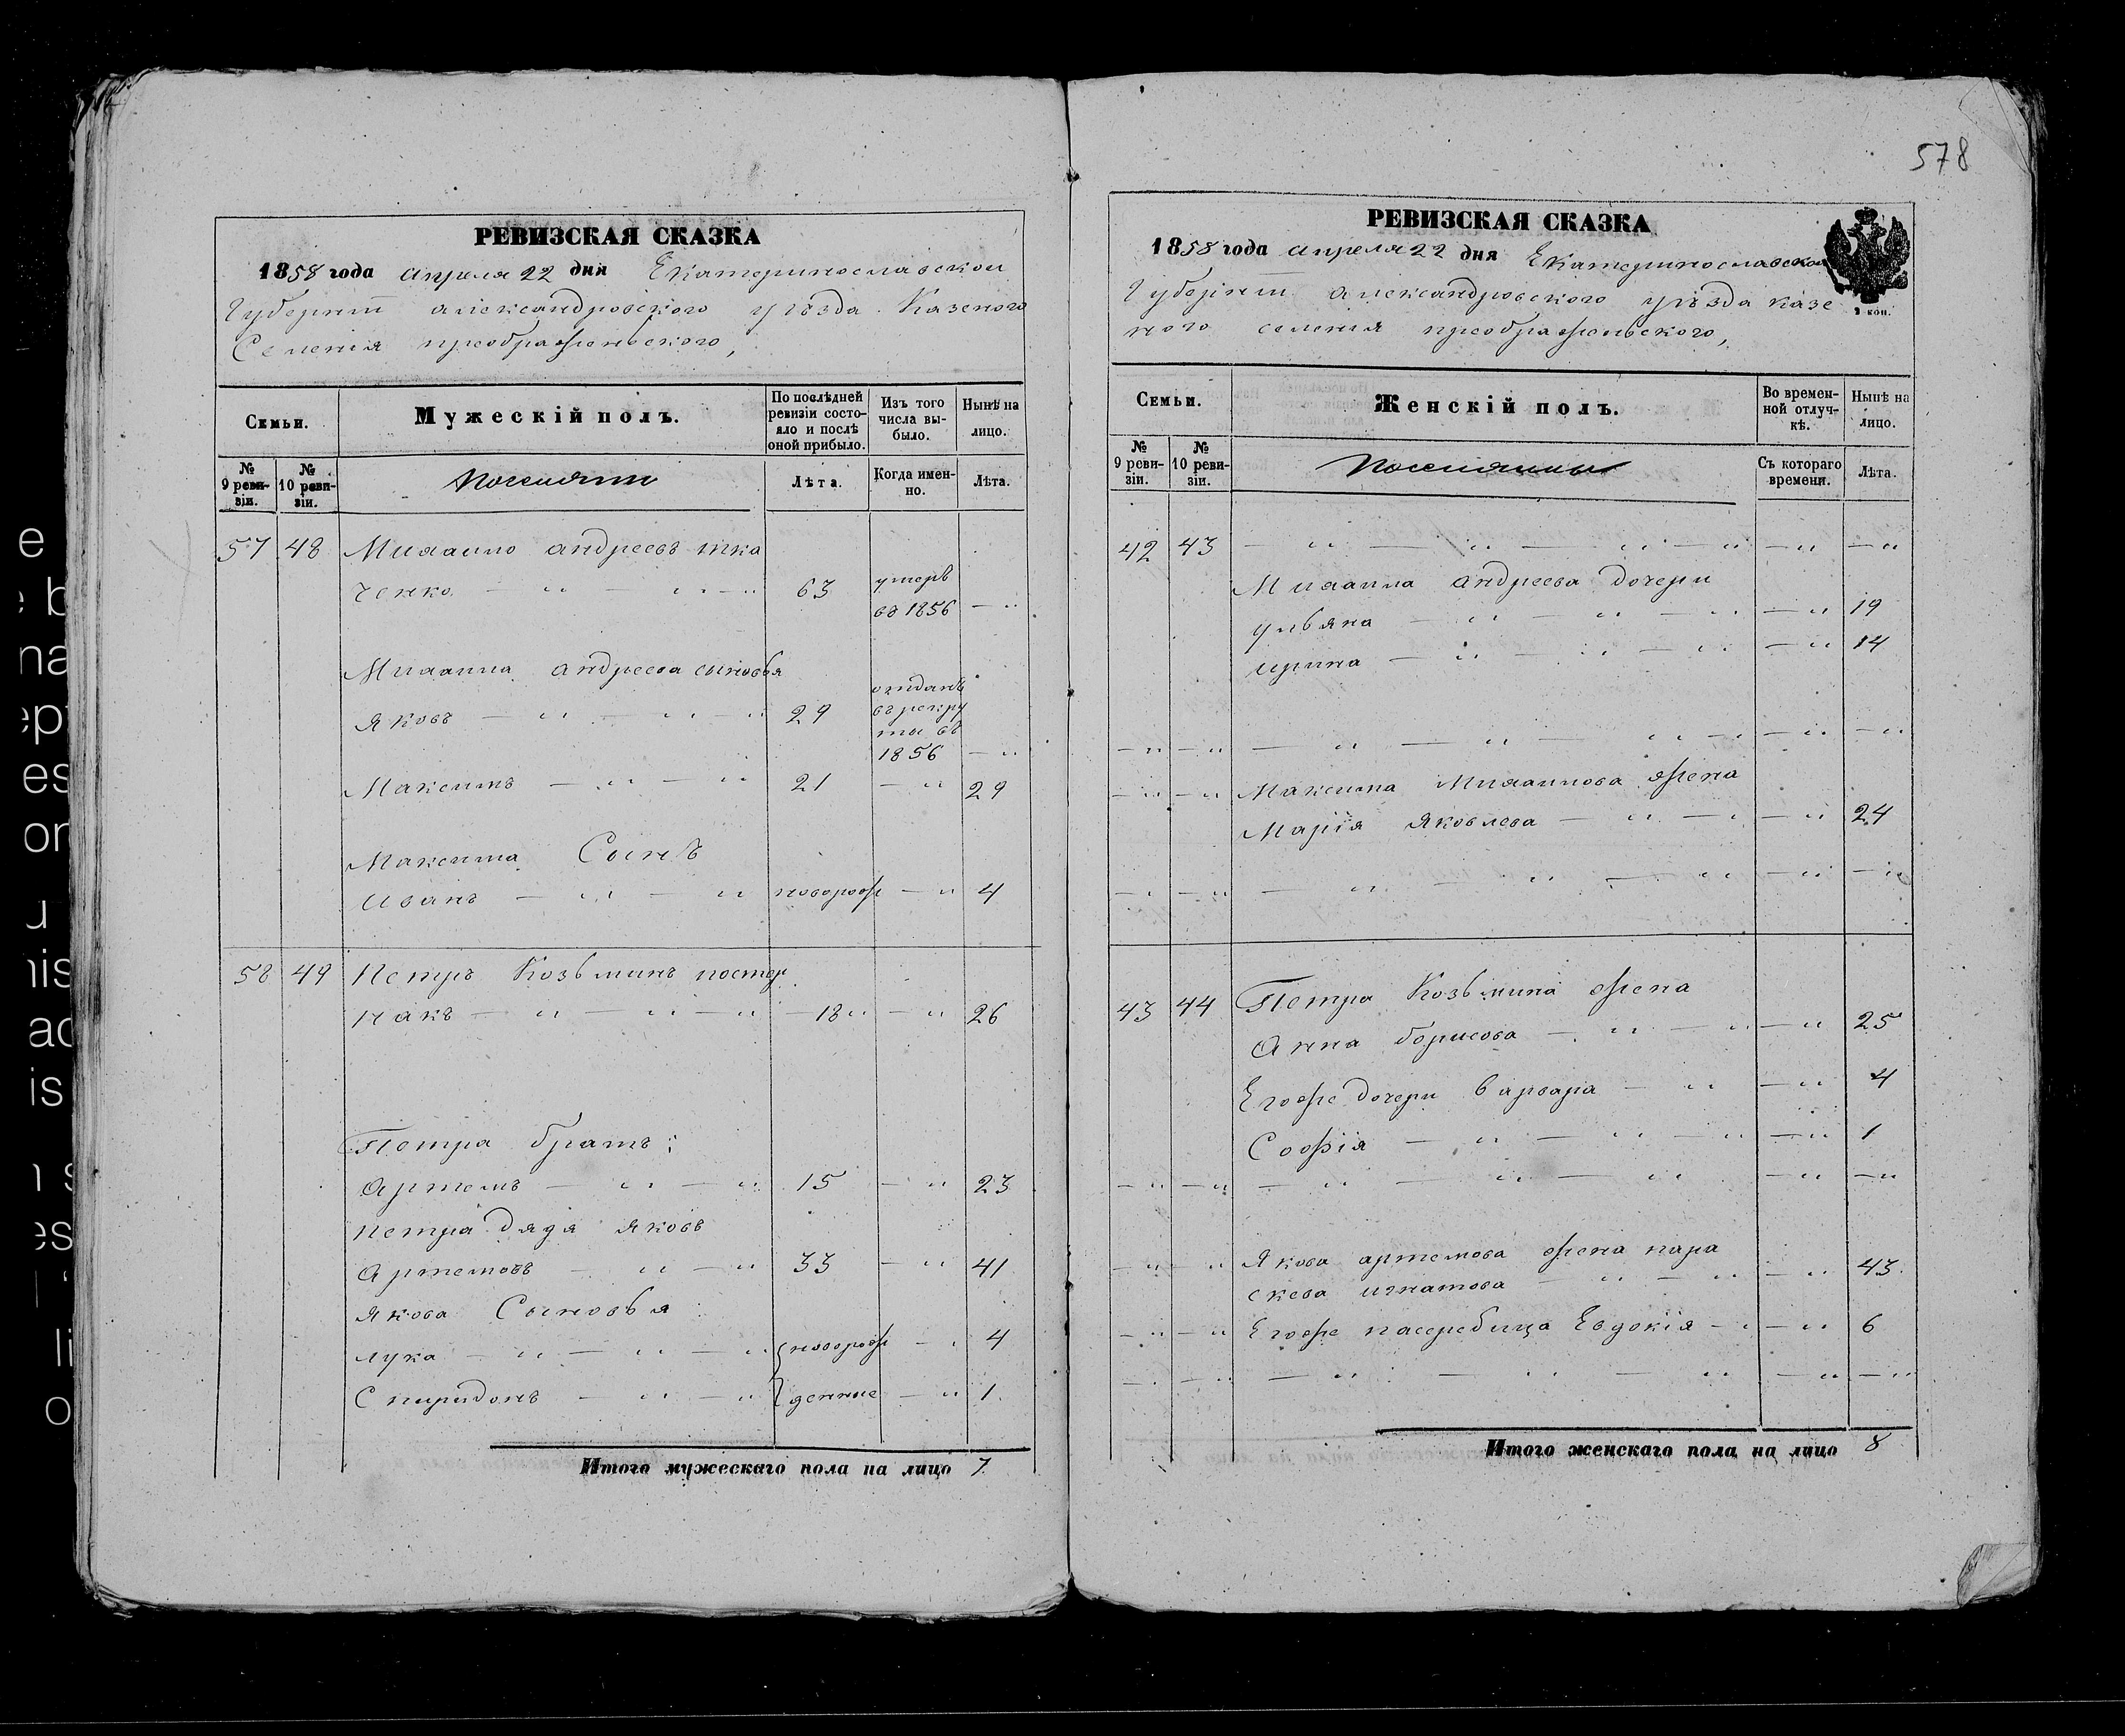 578
РЕВИЗСКАЯ СКАЗКА
1858 года апреля 22 дня Екатеринославской
Губернiи александровского уѣзда Казеного
Селенiя преображеньского,
Семьи.
Мужескiй полъ.
По послѣдней ревизiи состояло и послѣ оной прибыло.
Изъ того числа выбыло.
Нынѣ на лицо.
№ 9 ревизiи.
№ 10 ревизiи.
Поселяни
Лѣта.
Когда именно.
Лѣта.
57 48 Михаило андреевъ тка
ченко — „ — „ — „ 63 умеръ
въ 1856 — „
Михаила андреева сыновья
Яковъ — „ — „ — „ 29 отданъ
въ рекру
ты въ
1856 — „
Максимъ — „ — „ 21 — „ 29
Максима Сынъ
Иванъ — „ — „ новорож — „ 4
58 49 Петръ Козьминъ постор
накъ — „ — „ — „ — 18 „ — „ 26
Петра братъ:
Артемъ — „ — „ 15 — „ 23
Петра дядя Яковъ
Артемовъ — „ — „ 33 — „ 41
Якова Сыновья:
Лука — „ — „ — „ новорож — „ 4
Спиридонъ — „ — „ денние — „ 1
Итого мужескаго пола на лицо 7
РЕВИЗСКАЯ СКАЗКА
1858 года апреля 22 дня Екатеринославской
Губернiи александровского уѣзда казе
ного селенiя преображеньского,
2 коп.
Семьи.
Женскiй полъ.
Во временной отлучкѣ.
Нынѣ на лицо.
№ 9 ревизiи.
№ 10 ревизiи.
Поселянны
Съ котораго времени.
Лѣта.
42 43 — „ — „ — „ — „ — „ — „
Михаила андреева дочери
ульяна — „ — „ — „ — „ 19
ирина — „ — „ — „ — „ 14
— „ — „ — „ — „ — „ — — „ — „
— „ — „ Максима Михаилова жена
Марiя Яковлева — „ — „ — „ 24
— „ — „ — „ — „ — „ — „ — „ — „
43 44 Петра Козьмина жена
Анна борисова — „ — „ — „ 25
Егоже дочери варвара — „ — „ 4
Софiя — „ — „ — „ — „ 1
— „ — „ — „ — „ — „ — „ — „
— „ — „ Якова артемова жена пара
скева игнатова — „ — „ — „ 43
— „ — „ Егоже пасербица Евдокiя — „ — „ 6
— „ — „ — „ — „ — „ — „ — „
Итого женскаго пола на лицо 8